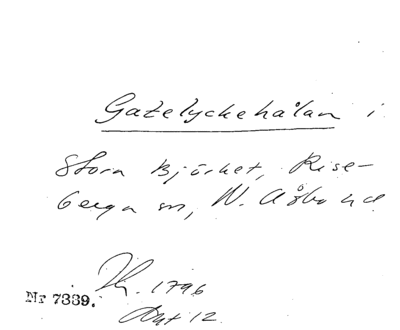 Gatelyckehålan i
Stora Björket, Rise-
berga sn, N. Åsbo hd.
Th. 1796
Akt 12
Nr 7339.